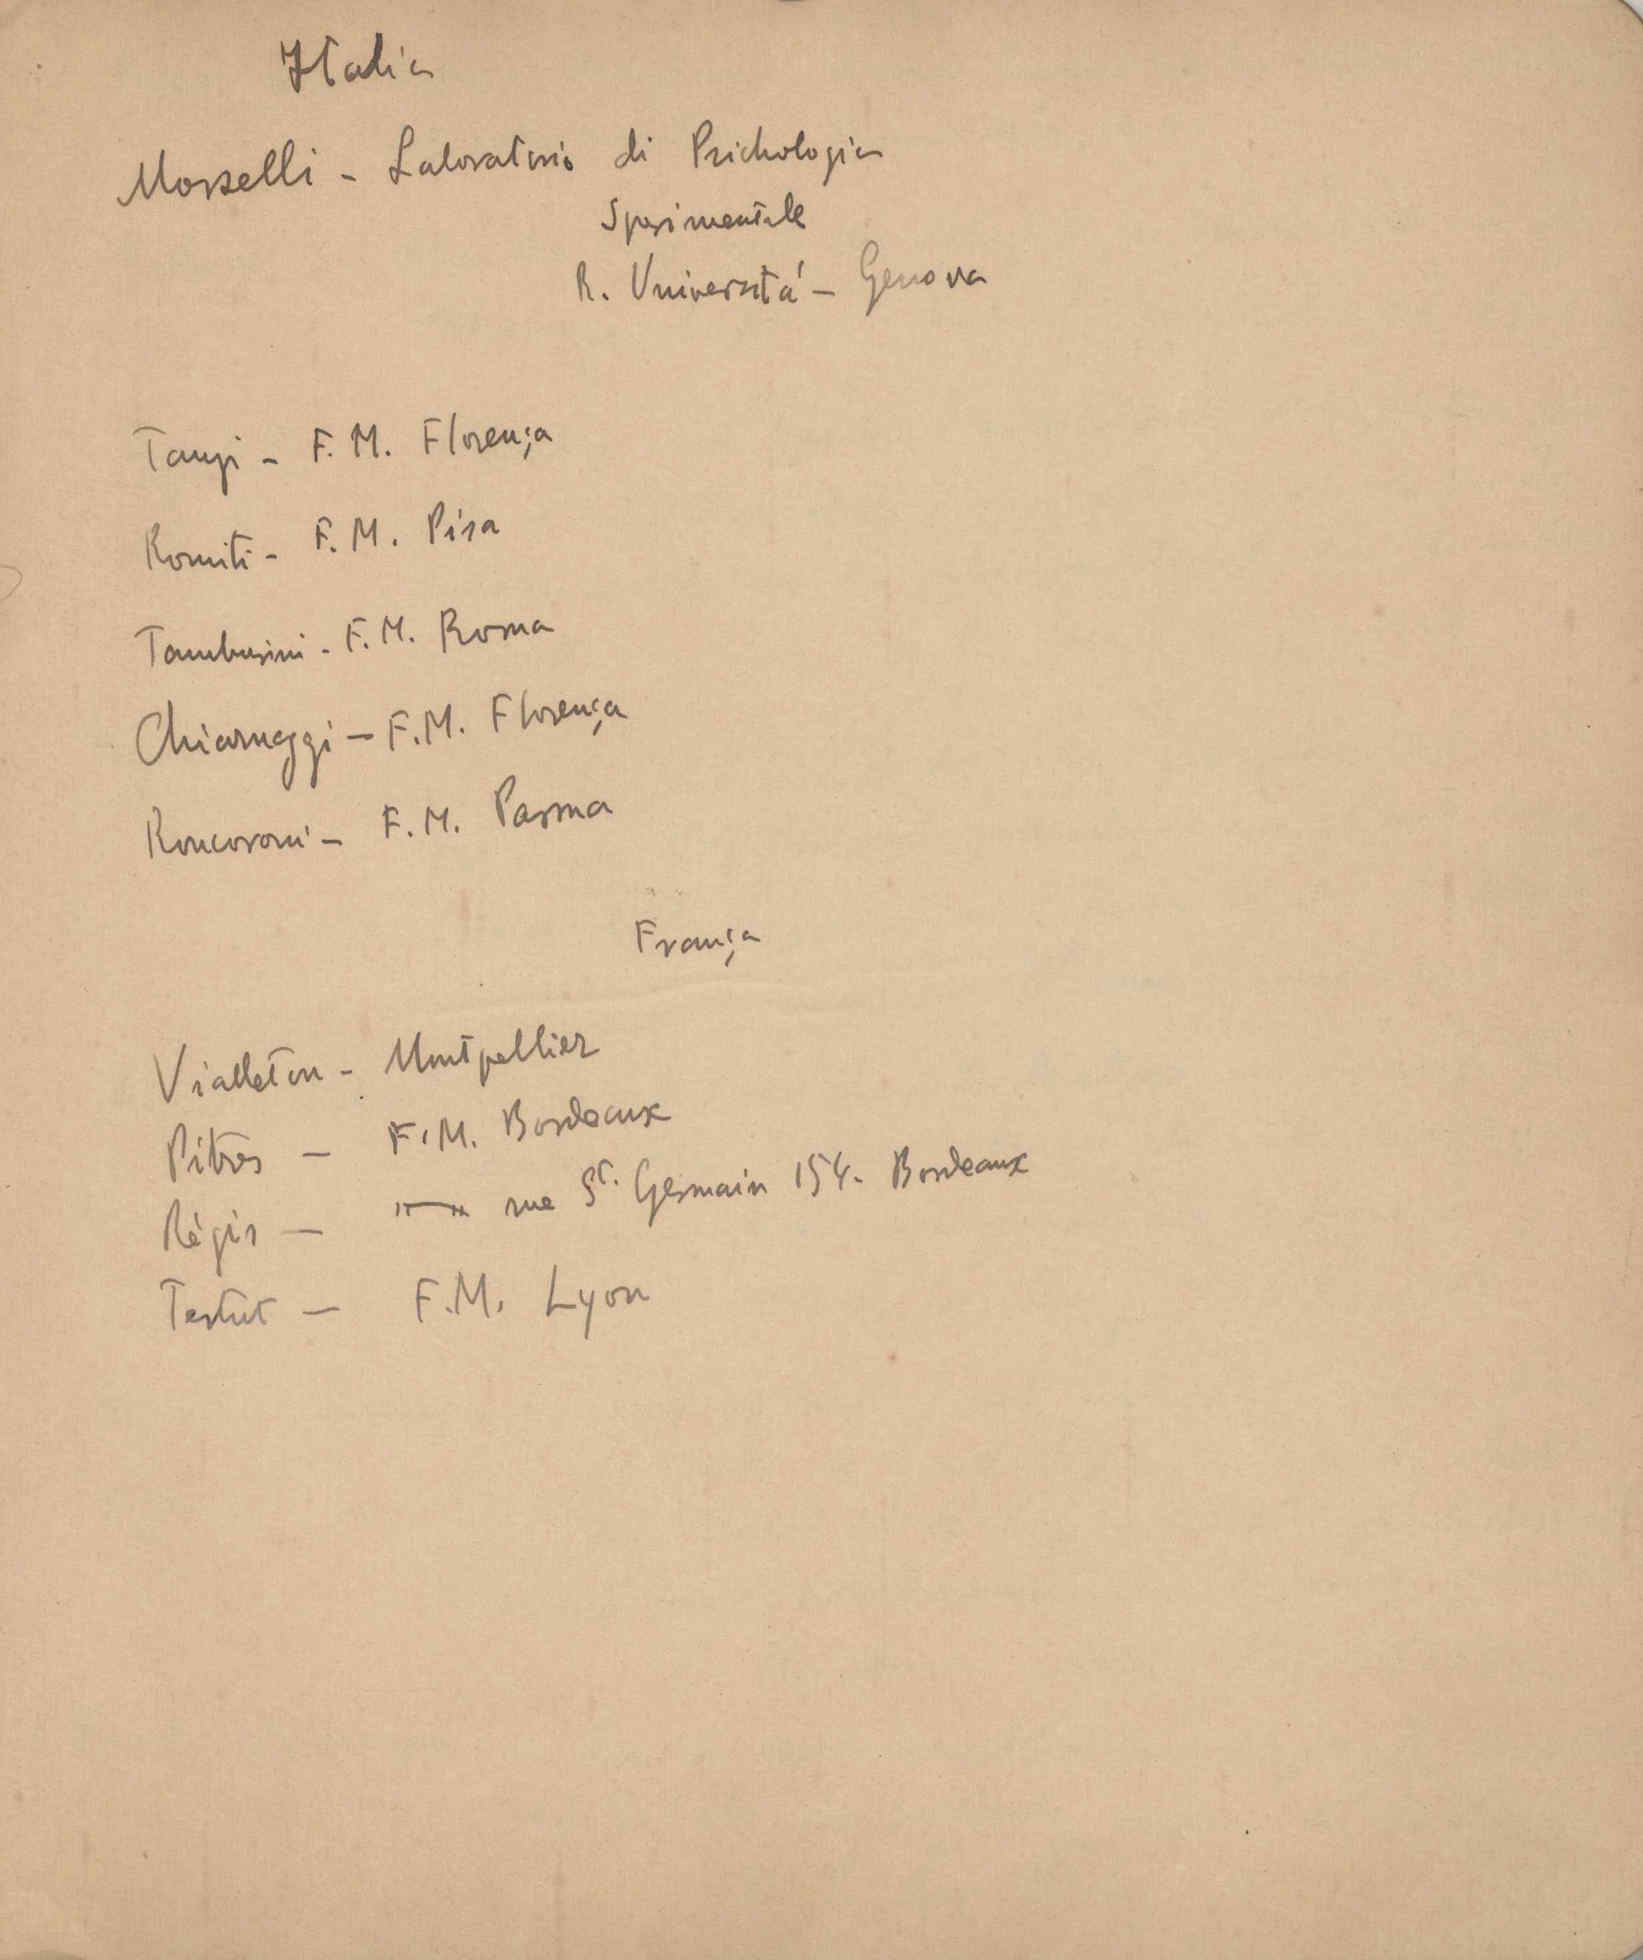 Italia
Morselli - Laboratorio di Psichologia
Sperimentale
R. Universitá - Genova
Tanzi - F. M. Florença
Romiti - F. M. Pisa
Tamburini - F. M. Roma
Chiaruggi - F. M. Florença
Roncoroni - F. M. Parma
França
Vialleton - Montpellier
Pitres - F. M. Bordeaux
Régis - "—" rue St. Germain 154. Bordeaux
Testut - F. M. Lyon